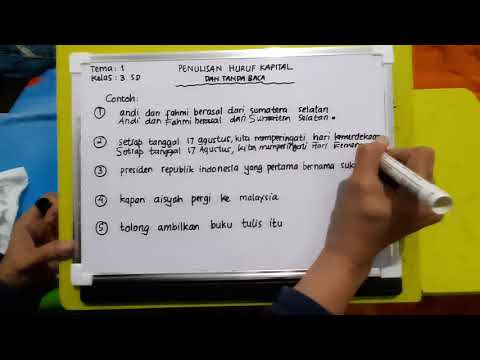 Tema : 1
Kelas : 3 SD
PENULISAN HURUF KAPITAL
DAN TANDA BACA
Contoh:
① andi dan fahmi berasal dari sumatera selatan
Andi dan Fahmi berasal dari Sumatera Selatan.
② setiap tanggal 17 agustus, kita memperingati hari kemerdekaan
Setiap tanggal 17 Agustus, kita memperingati Hari
③ presiden republik indonesia yang pertama bernama
④ kapan aisyah pergi ke malaysia
⑤ tolong ambilkan buku tulis itu